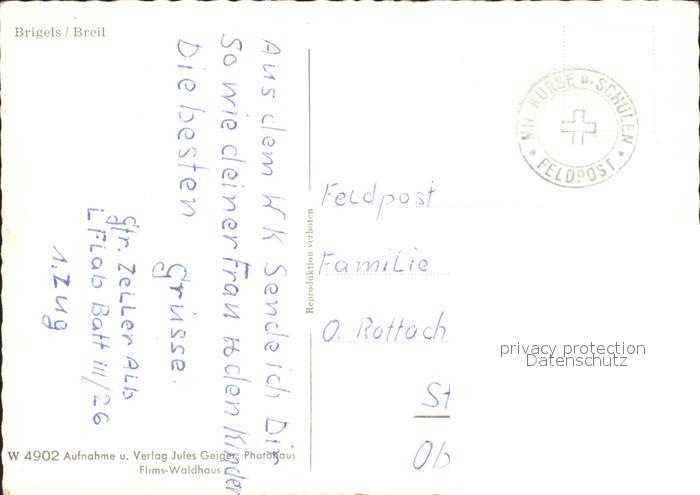 Brigels / Breil
Aus dem WK Sende ich Dir
So wie deiner Frau u den Kinder
Die besten
Grüsse.
Gfr. Zeiller Alb
L Flab Batt III/26
1. Zug
W 4902 Aufnahme u. Verlag Jules Geiger, Photohaus
Flims-Waldhaus
Reproduktion verboten
MIL. KURSE u. SCHULEN
* FELDPOST *
Feldpost
Familie
O. Rottach
St
Ob
privacy protection
Datenschutz